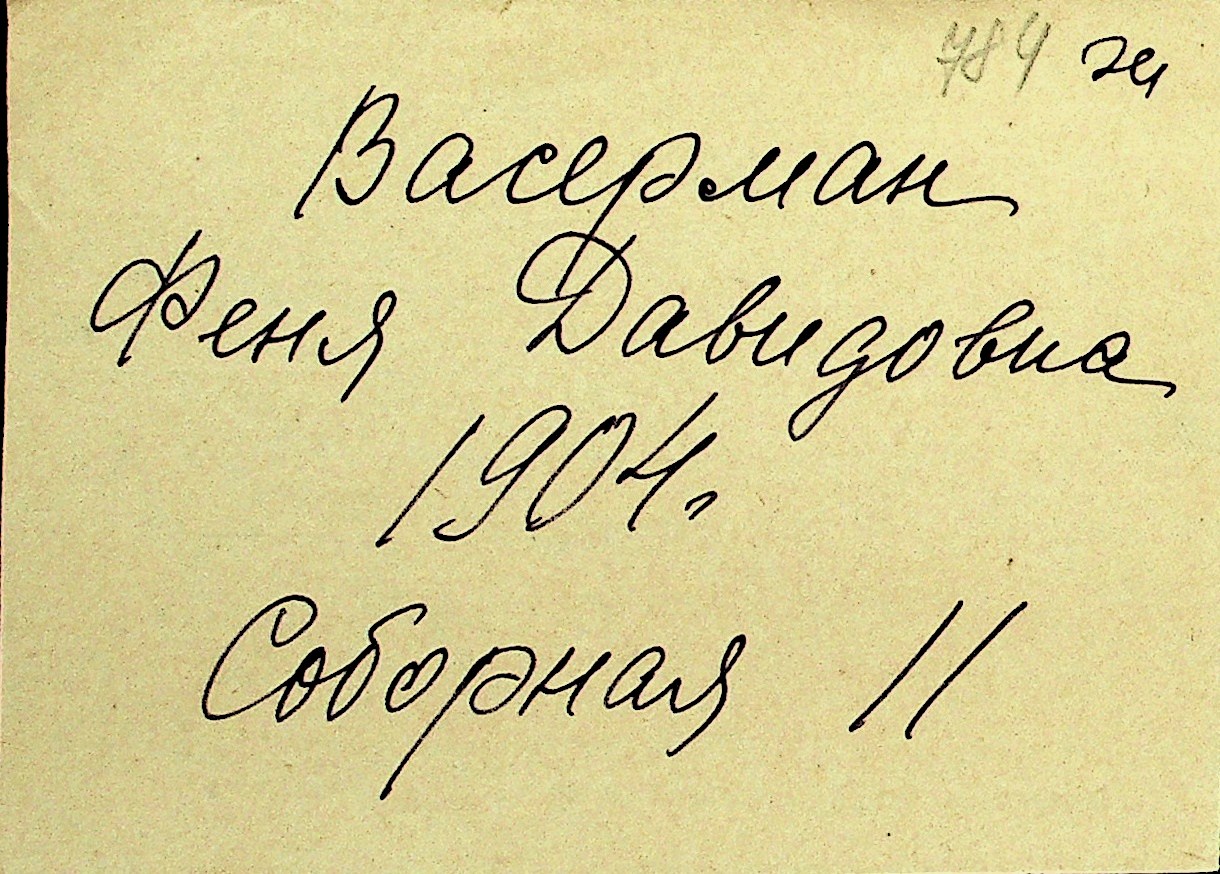 784
Васерман
Феня Давидовна
1904.
Соборная 11